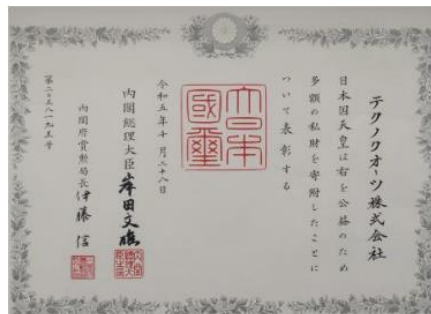 テクノクオーツ株式会社
日本国天皇は右を公益のため
多額の私財を寄附したことに
ついて表彰する
大日本國璽
令和五年十月二十八日
内閣総理大臣 岸田文雄
内閣府賞勲局長 伊藤信